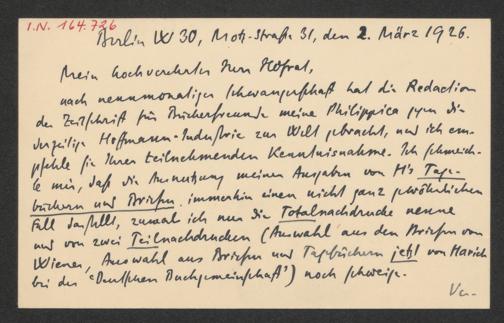 I.N. 164.726
Berlin W 30, Motz-Straße 31, den 2. März 1926.
Mein hochverehrter Herr Hofrat,
nach neunmonatiger Schwangerschaft hat die Redaction
der Zeitschrift für Bücherfreunde meine Philippica gegen die
derzeitige Hoffmann-Industrie zur Welt gebracht, und ich em-
pfehle sie Ihrer teilnehmenden Kenntnisnahme. Ich schmeich-
le mir, daß die Ausnutzung meiner Ausgaben von H's Tage-
büchern und Briefen immerhin einen nicht ganz gewöhnlichen
Fall darstellt, zumal ich nur die Totalnachdrucke nenne
und von zwei Teilnachdrucken (Auswahl aus den Briefen von
Wiener, Auswahl aus Briefen und Tagebüchern jetzt von Harich
bei der 'Deutschen Buchgemeinschaft') noch schweige.